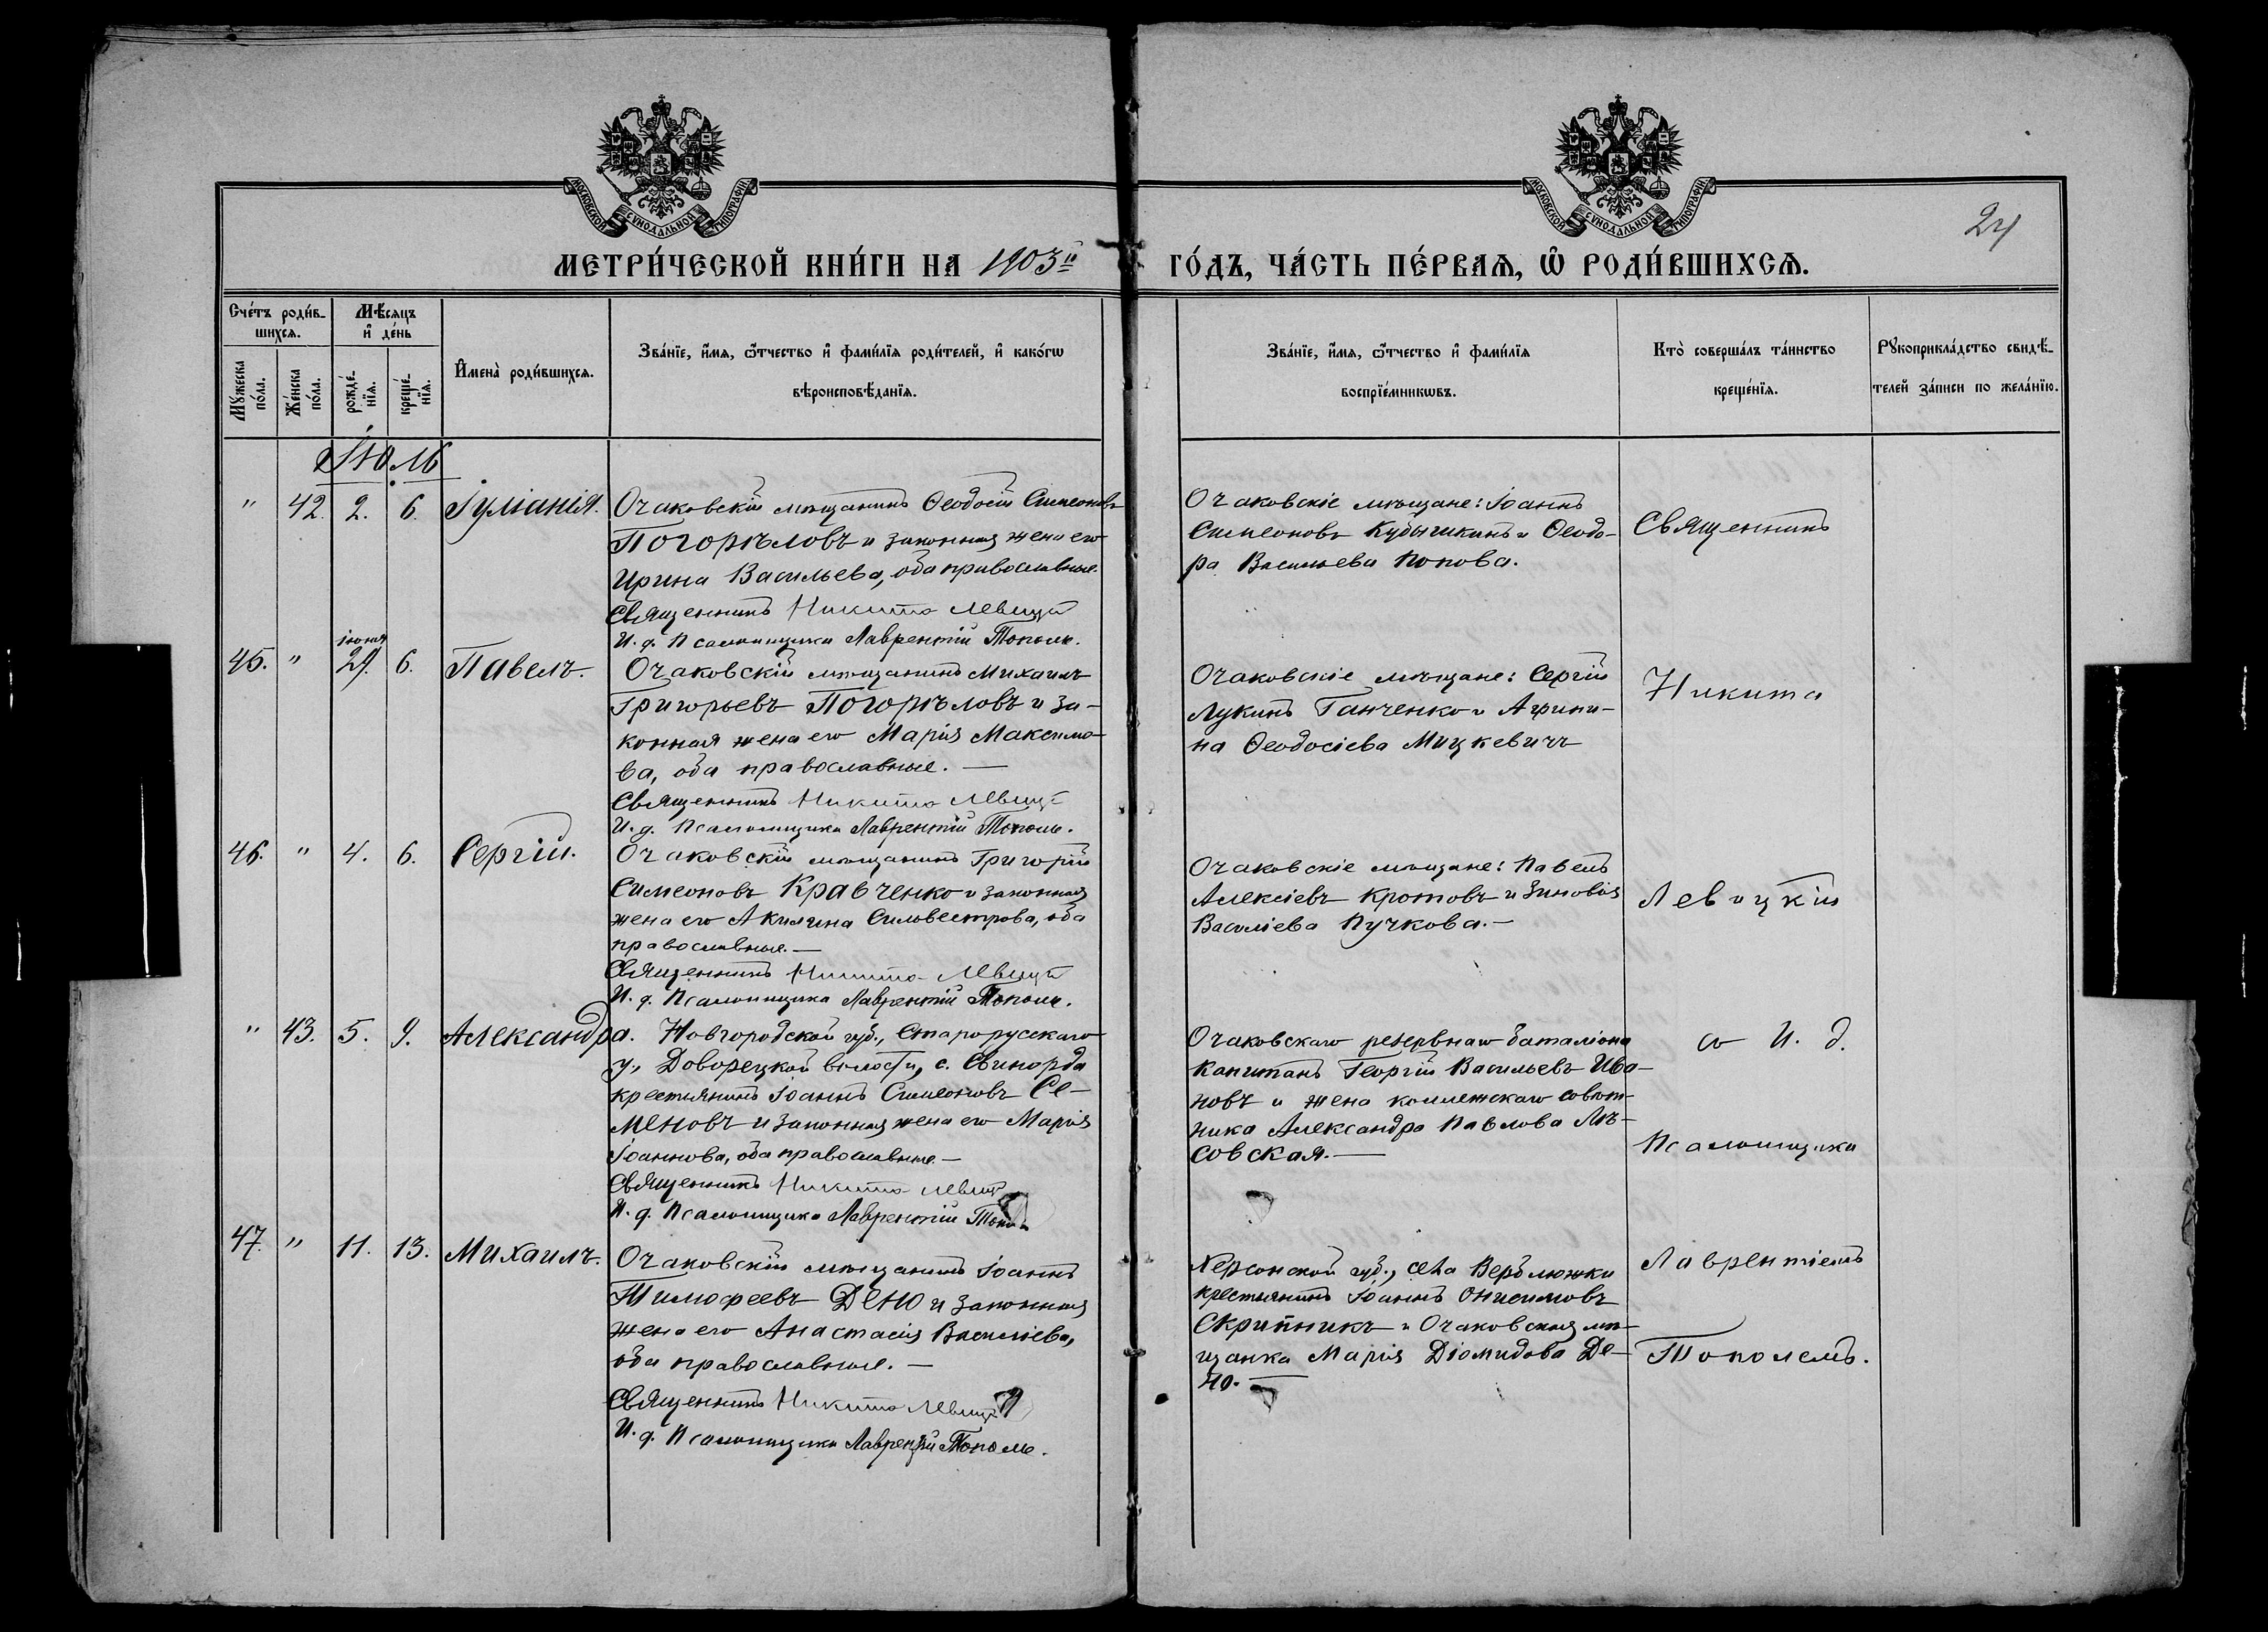 МОСКОВСКОЙ СѴНОДАЛЬНОЙ ТИПОГРАФІИ.
МОСКОВСКОЙ СѴНОДАЛЬНОЙ ТИПОГРАФІИ.
24
МЕТРИ́ЧЕСКОЙ КНИ́ГИ НА 1903й ГО́ДЪ, ЧА́СТЬ ПЕ́РВАѦ, Ѡ РОДИ́ВШИХСѦ.
Сче́тъ роди́в-
шихсѧ.
Мꙋжеска по́ла.
Же́нска по́ла.
Мѣ́сѧцъ
и҆ де́нь
рожде́-
нїѧ.
креще́-
нїѧ.
И҆мена̀ роди́вшихсѧ.
Зва́нїе, и҆́мѧ, ѻ҆́тчество и҆ фами́лїѧ роди́телей, и҆ како́гѡ
вѣроисповѣ́данїѧ.
Зва́нїе, и҆́мѧ, ѻ҆́тчество и҆ фами́лїѧ
воспрїе́мникѡвъ.
Кто̀ соверша́лъ та́инство
креще́нїѧ.
Рꙋкоприкла́дство свидѣ́-
телей за́писи по жела́нїю.
Іюль
" 42. 2. 6. Іуліанія.
Очаковскій мѣщанинъ Ѳеодосій Симеоновъ
Погорѣловъ и законная жена его
Ирина Васильева, оба православные.
Священникъ Никита Левицкій
И. д. Псаломщика Лаврентій Тополь.
Очаковскіе мѣщане: Іоаннъ
Симеоновъ Кубышкинъ и Ѳеодо-
ра Васильева Попова.
Священникъ
45. " іюня 29. 6. Павелъ.
Очаковскій мѣщанинъ Михаилъ
Григорьевъ Погорѣловъ и за-
конная жена его Марія Максимо-
ва, оба православные. —
Священникъ Никита Левицкій
И. д. Псаломщика Лаврентій Тополь.
Очаковскіе мѣщане: Сергій
Лукинъ Ганченко и Агрипи-
на Ѳеодосіева Мицкевичъ
Никита
46. " 4. 6. Сергій.
Очаковскій мѣщанинъ Григорій
Симеоновъ Кравченко и законная
жена его Акилина Сильвестрова, оба
православные. —
Священникъ Никита Левицкій
И. д. Псаломщика Лаврентій Тополь.
Очаковскіе мѣщане: Павелъ
Алексіевъ Кротовъ и Зиновія
Василіева Пучкова. —
Левицкій
" 43. 5. 9. Александра.
Новгородской губ., Старорусскаго
у., Доворецкой волости, с. Свинорда
крестьянинъ Іоаннъ Симеоновъ Се-
меновъ и законная жена его Марія
Іоаннова, оба православные —
Священникъ Никита Левицкій
И. д. Псаломщика Лаврентій Тополь
Очаковскаго резервнаго баталіона
Капитанъ Георгій Васильевъ Ива-
новъ и жена коллежскаго совѣт-
ника Александра Павлова Лѣ-
совская. —
со И. д.
Псаломщика
47. " 11. 13. Михаилъ.
Очаковскій мѣщанинъ Іоаннъ
Тимофеевъ Дено и законная
жена его Анастасія Василіева,
оба православные. —
Священникъ Никита Левицкій
И. д. Псаломщика Лаврентій Тополь.
Херсонской губ., села Верблюжки
крестьянинъ Іоаннъ Онисимовъ
Скрипникъ и Очаковская мѣ-
щанка Марія Діомидова Де-
но. —
Лаврентіемъ
Тополемъ.